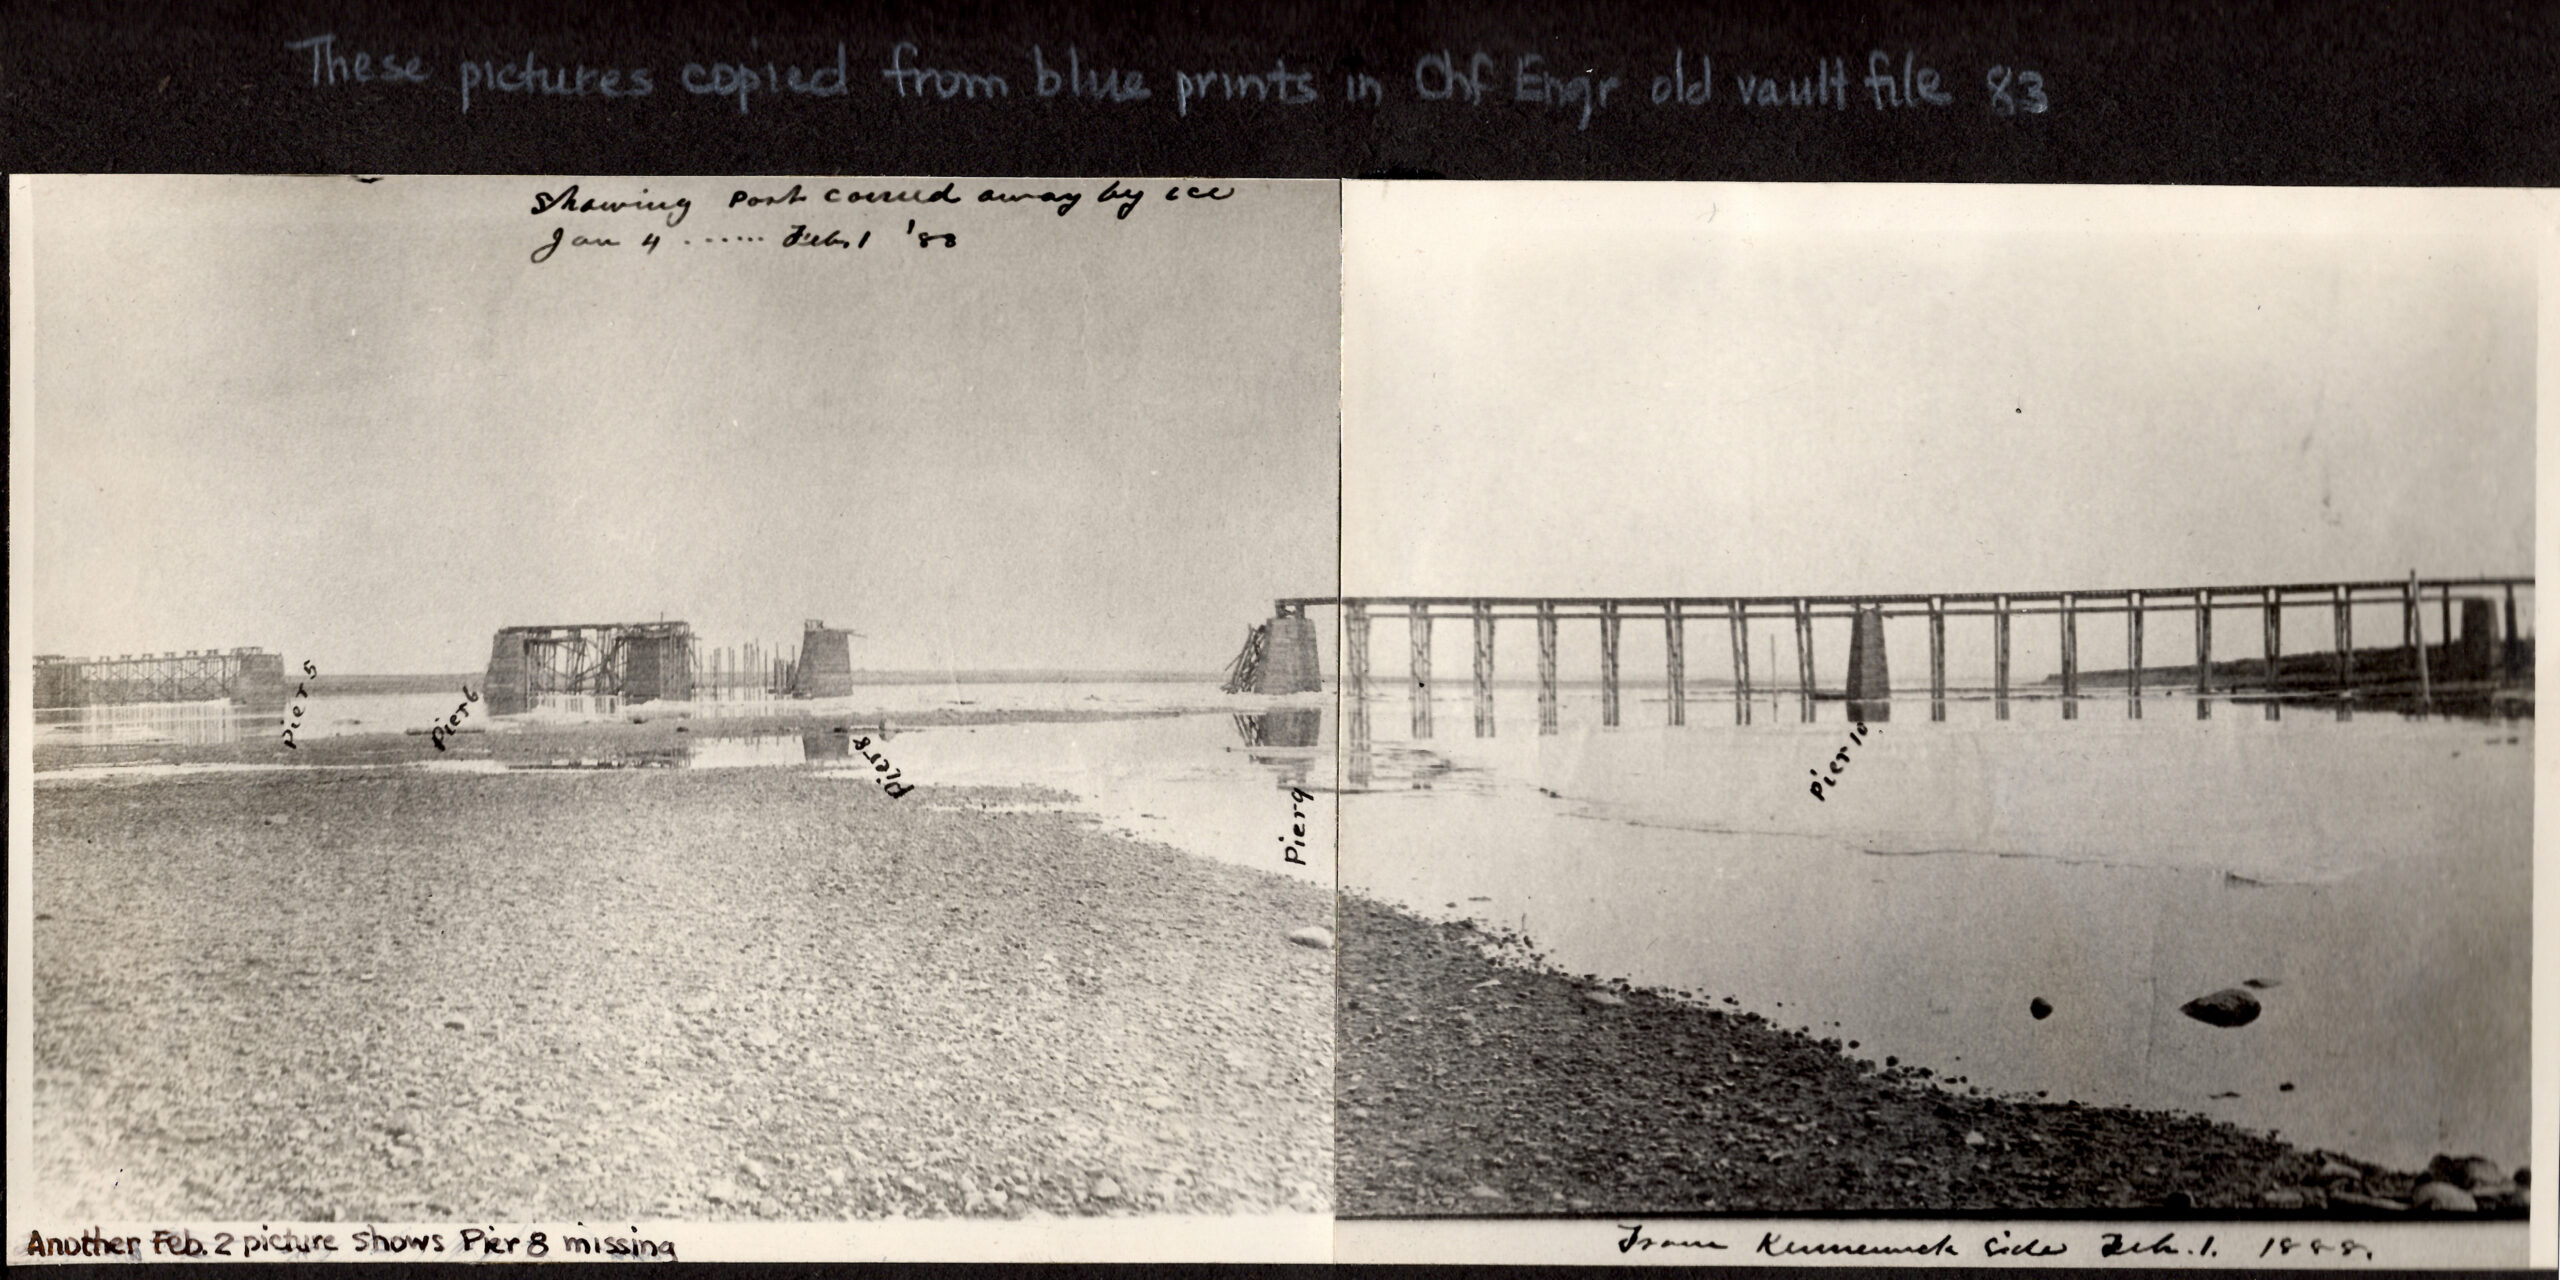 These pictures copied from blue prints in Chf Engr old vault file 83
Showing part carried away by ice
Jan 4 ...... Feb. 1 '88
Pier 5
Pier 6
Pier 8
Pier 9
Pier 10
Another Feb. 2 picture shows Pier 8 missing
From Kennewick side Feb. 1. 1888.